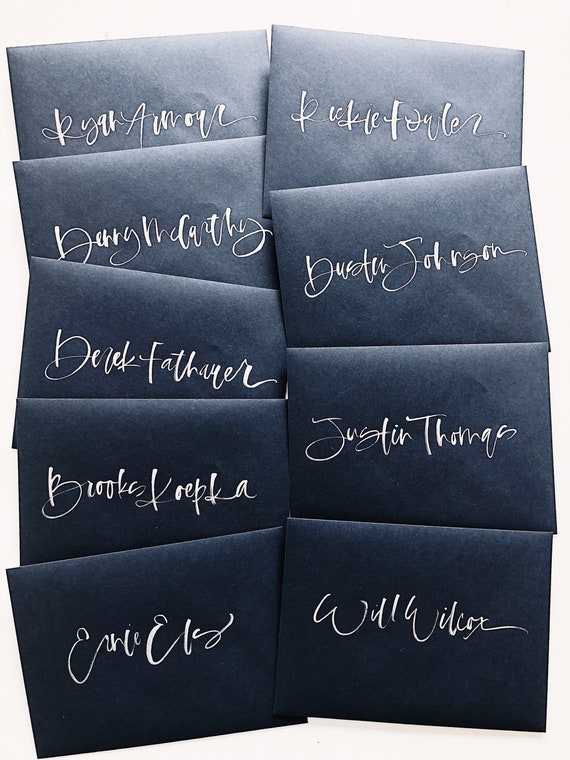 Ryan Armour
Rickie Fowler
Denny McCarthy
Dustin Johnson
Derek Fathauer
Justin Thomas
Brooks Koepka
Will Wilcox
Ernie Els